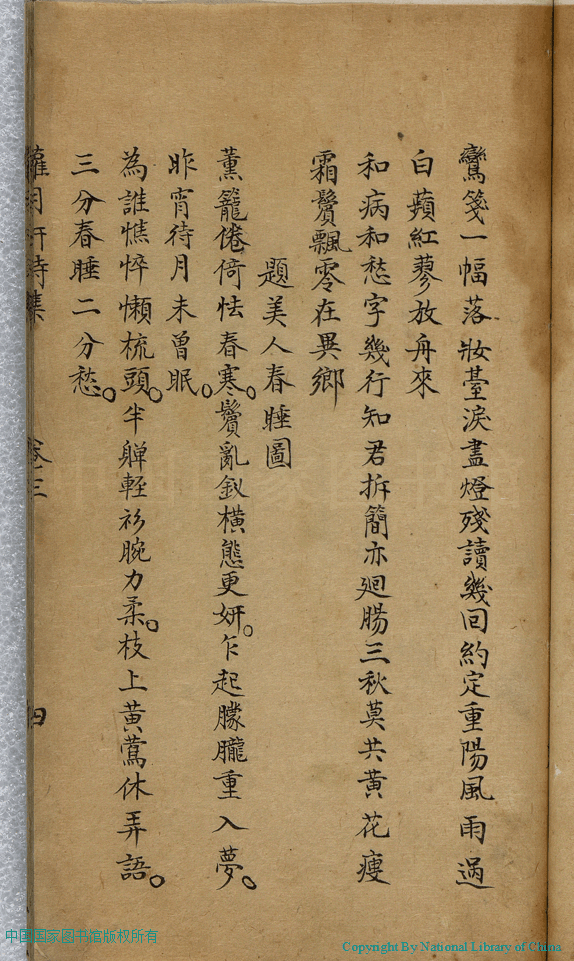 鸞箋一幅落妝臺淚盡燈殘讀幾回約定重陽風雨過
白蘋紅蓼放舟來
和病和愁字幾行知君拆簡亦迴腸三秋莫共黃花瘦
霜鬢飄零在異鄉
題美人春睡圖
薰籠倦倚怯春寒鬢亂釵橫態更妍乍起朦朧重入夢
昨宵待月未曾眠
為誰憔悴懶梳頭半軃輕衫腕力柔枝上黃鶯休弄語
三分春睡二分愁
詩集 卷三 四
中国国家图书馆版权所有
Copyright By National Library of China